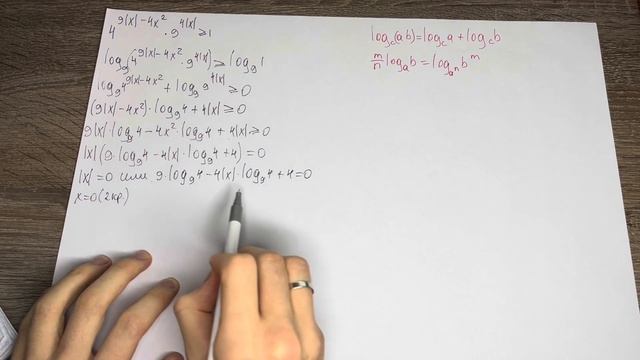 4^{9|x|-4x^2} · 9^{4|x|} ≥ 1
log_9(4^{9|x|-4x^2} · 9^{4|x|}) ≥ log_9 1
log_9 4^{9|x|-4x^2} + log_9 9^{4|x|} ≥ 0
(9|x|-4x^2) · log_9 4 + 4|x| ≥ 0
9|x| · log_9 4 - 4x^2 · log_9 4 + 4|x| ≥ 0
|x|(9 · log_9 4 - 4|x| · log_9 4 + 4) = 0
|x| = 0 или 9 · log_9 4 - 4|x| · log_9 4 + 4 = 0
x = 0 (2кр.)
log_c(ab) = log_c a + log_c b
m/n log_a b = log_{a^n} b^m